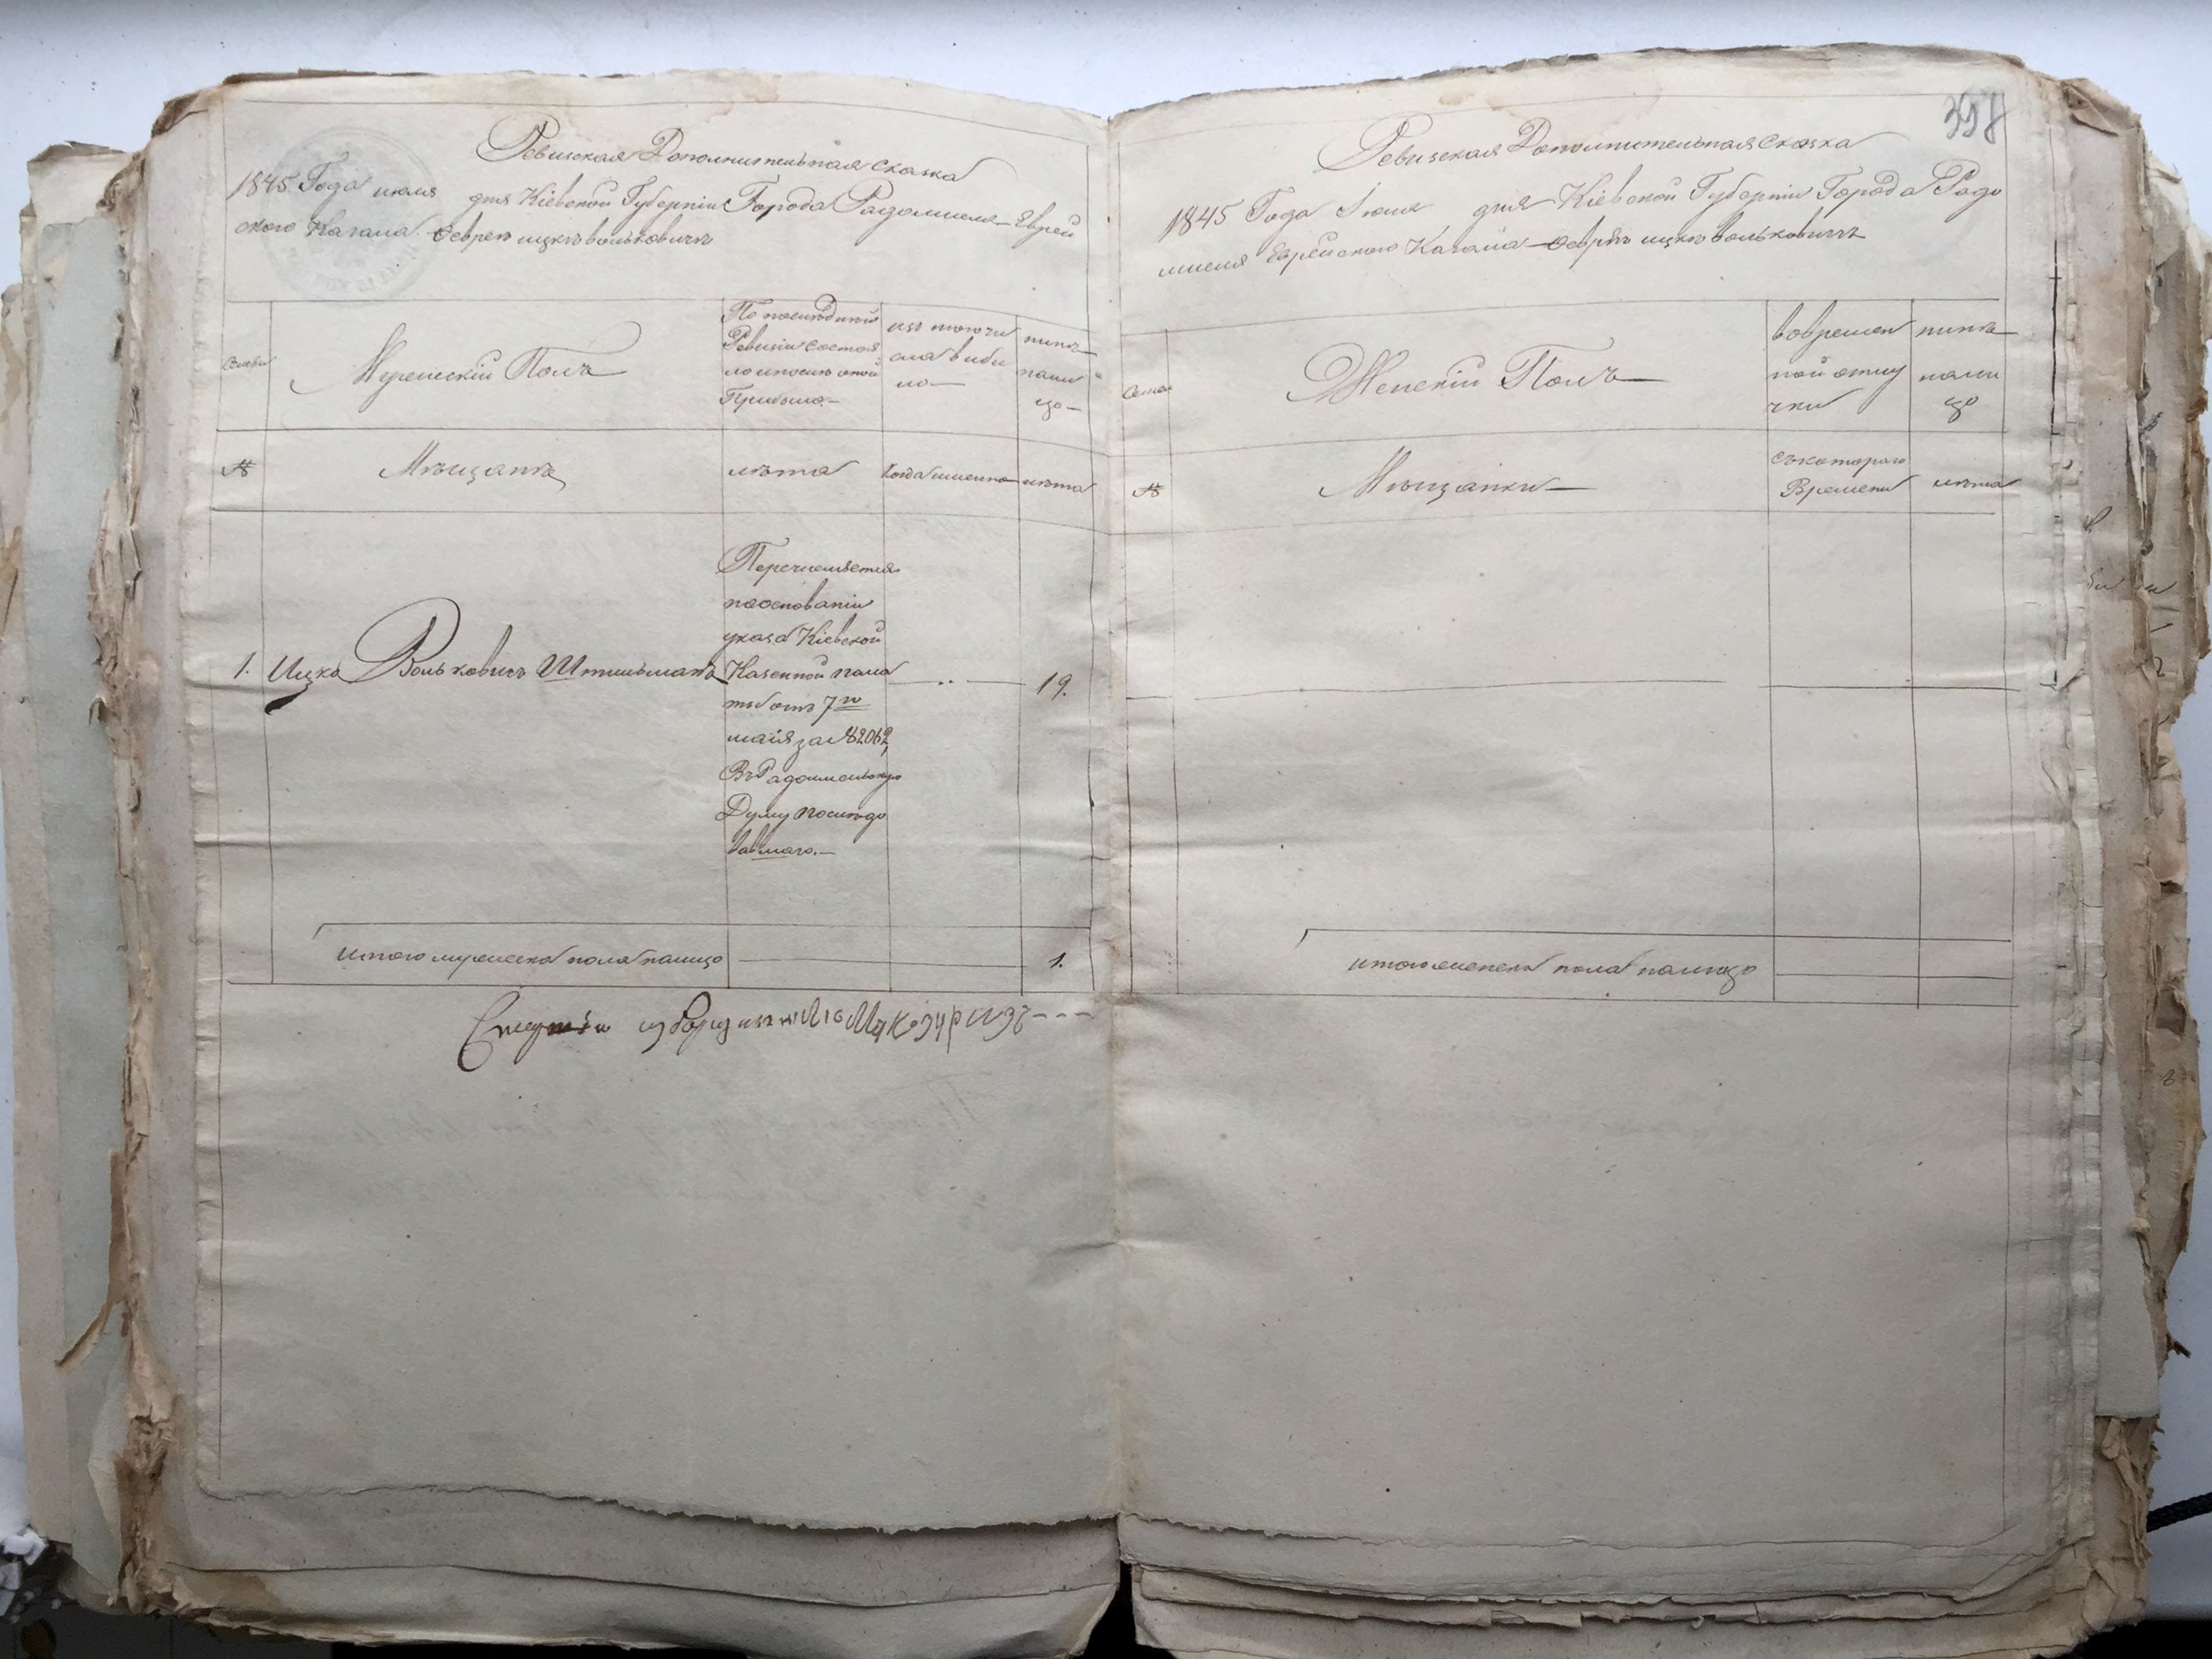 Ревизская Дополнительная сказка
1845 Года июля дня Кіевской Губерніи Города Радомысля Еврей
ского Кагала о Еврее ицкѣ вольковичѣ
Семьи
Мужескій Полъ
По последней
Ревизіи состоя
ло и после оной
Прибыло
изъ того чи
сла выбы
ло
нынѣ
нали
цо
№
Мѣщанѣ
лѣта
когда именно
лѣта
1. Ицко Вольковичъ Штильманъ
Перечисляется
на основаніи
указа Кіевской
Казенной пала
ты отъ 7го
маія за №2062,
Въ Радомысльскую
Думу последо
вавшаго.
19.
итого мужеска пола налицо
1.
358
Ревизская Дополнительная Сказка
1845 Года Іюля дня Кіевской Губерніи Города Радо
мысля Еврейского Кагала о Евреѣ ицкѣ Вольковичѣ
Семьи
Женскій Полъ
во времен
ной отлу
чки
нынѣ
нали
цо
№
Мѣщанки
съ котораго
Времени
лѣта
итого женска пола налицо